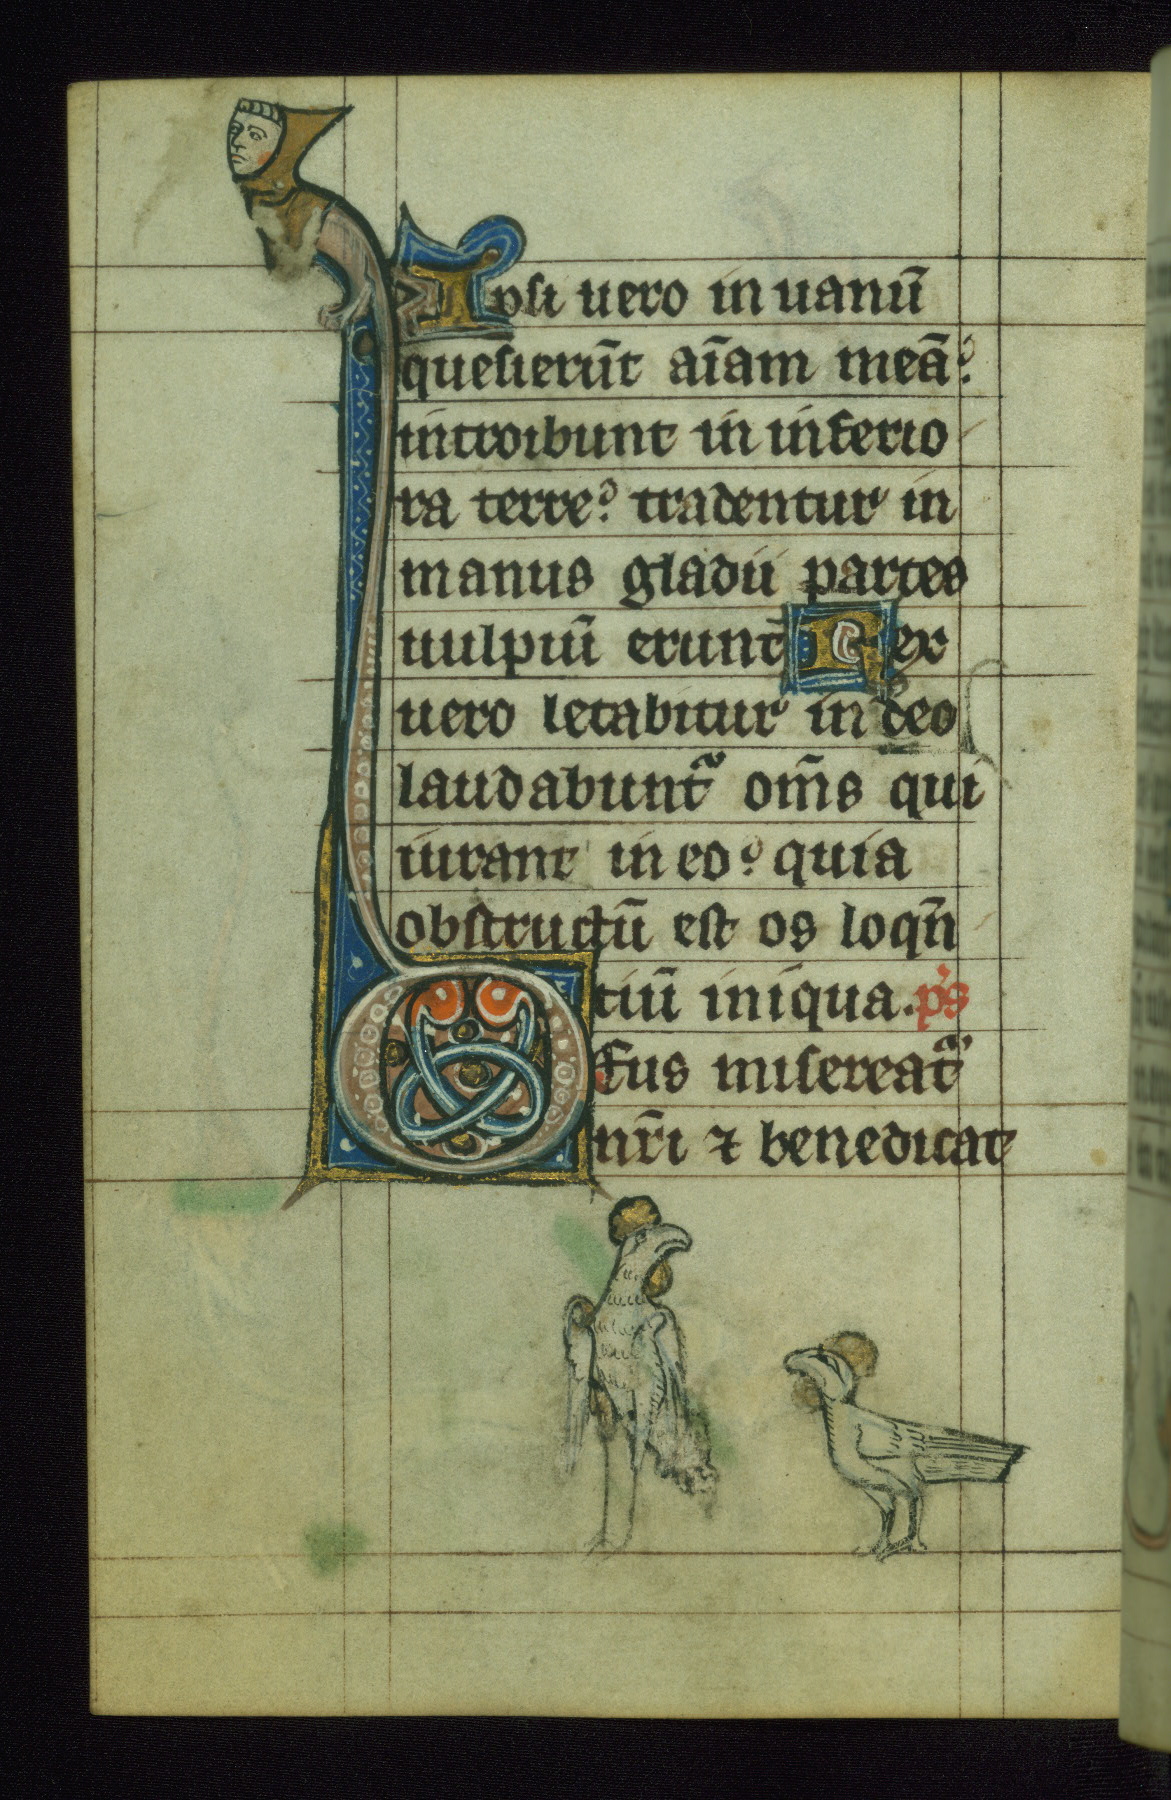 Ipsi uero in uanū
quesierūt aīam meā?
introibunt in inferio
ra terre? tradentur in
manus gladii partes
uulpiū erunt Rex
uero letabitur in deo
laudabunt᷑ om̄s qui
iurant in eo? quia
obstructū est os loqn̄
tiū iniqua. p̄s
Eus misereat᷑
nr̄i ⁊ benedicat